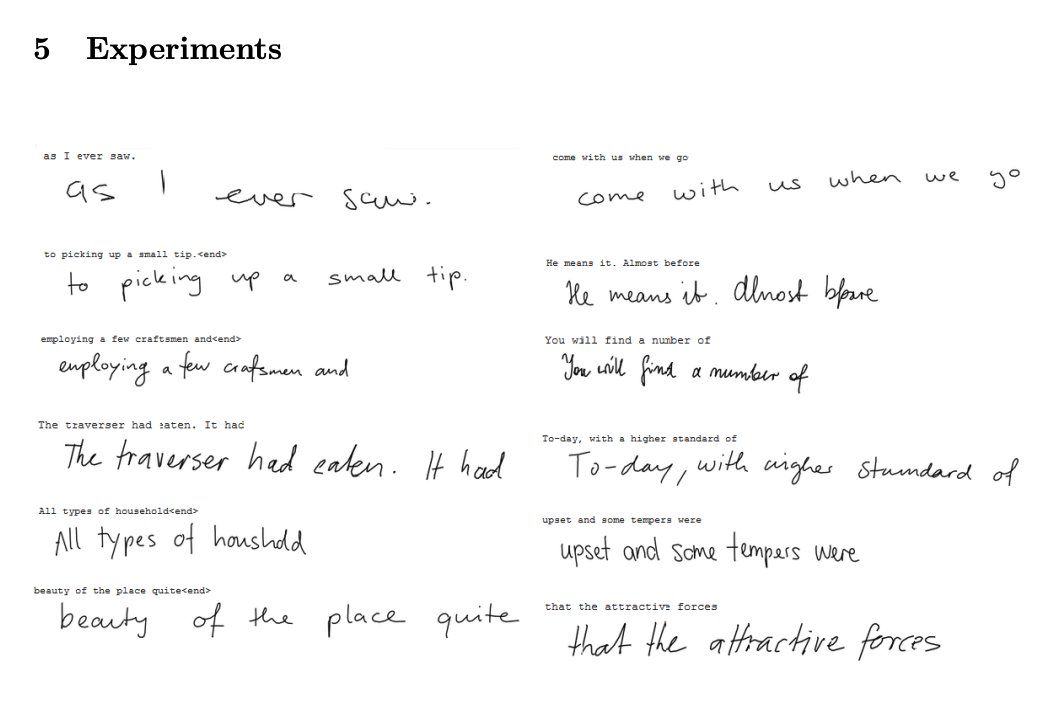 5 Experiments
as I ever saw.
as I ever saw.
to picking up a small tip.<end>
to picking up a small tip.
employing a few craftsmen and<end>
employing a few crafsmen and
The traverser had eaten. It had
The traverser had eaten. It had
All types of household<end>
All types of houshold
beauty of the place quite<end>
beauty of the place quite
come with us when we go
come with us when we go
He means it. Almost before
He means it. Almost bfore
You will find a number of
You will find a number of
To-day, with a higher standard of
To-day, with aigher stumdard of
upset and some tempers were
upset and some tempers were
that the attractive forces
that the attractive forces